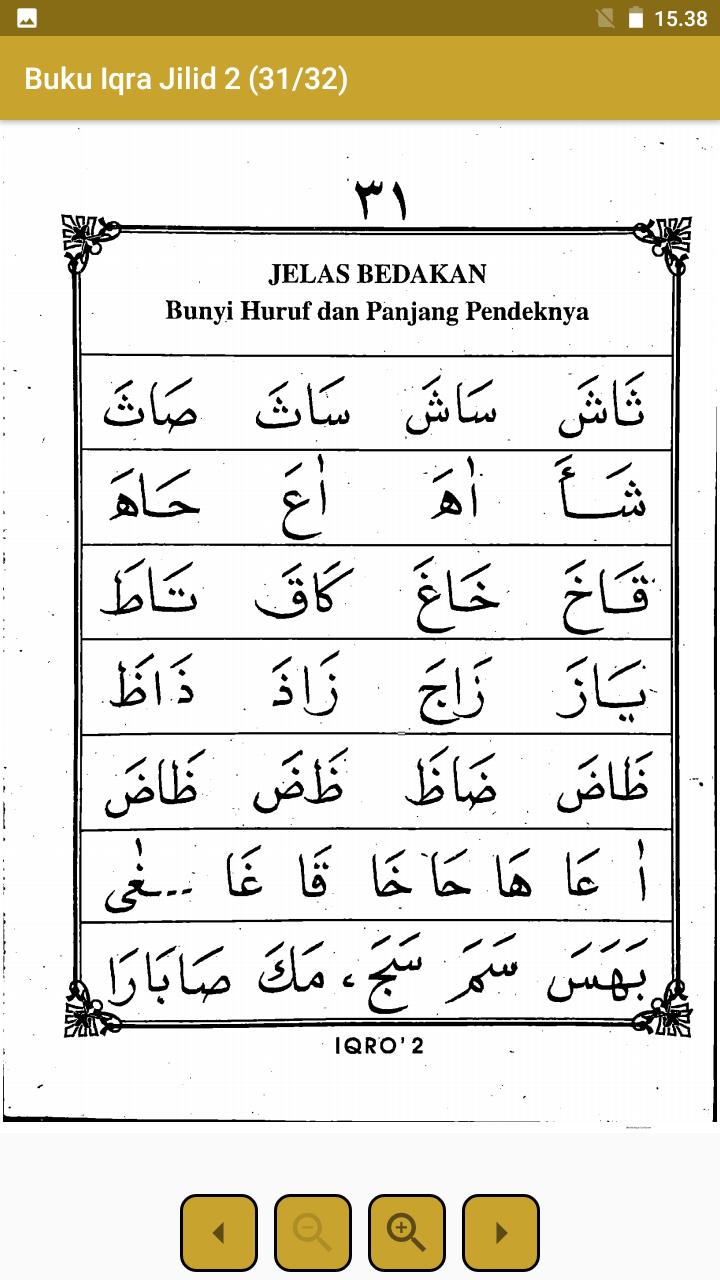 15.38
Buku Iqra Jilid 2 (31/32)
٣١
JELAS BEDAKAN
Bunyi Huruf dan Panjang Pendeknya
ثَاشَ سَاشَ سَاثَ صَاثَ
شَأَ اٰهَ اٰعَ حَاهَ
قَاخَ خَاغَ كَاقَ تَاطَ
يَازَ زَاجَ زَاذَ ذَاظَ
ظَاضَ ضَاظَ ظَضَ ظَاضَ
اٰ عَا هَا حَا خَا قَا غَا ...غٰى
بَهَسَ سَمَ سَجَ، مَكَ صَابَارَا
IQRO' 2